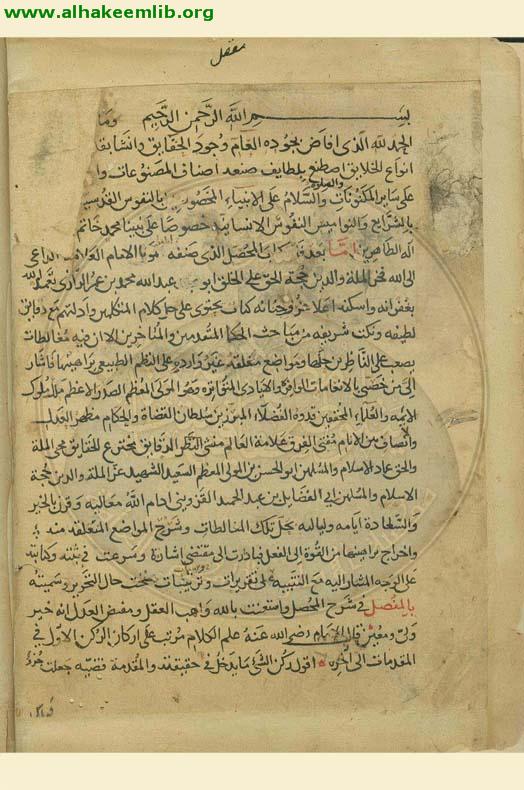 www.alhakeemlib.org
مفصل
بسم الله الرحمن الرحيم
الحمد لله الذي افاض بجوده العام وجود الحقايق وانشا
انواع الخلايق اصطنع بلطايف صنعه اصناف المصنوعات
على ساير المكنونات والصلوة والسلام على الانبياء بالنفوس القدسية
بالشرايع والنواميس النفوس الانسانية خصوصا على نبينا محمد خاتم
اله الطاهرين اما بعد كتاب المحصل الذي صنفه مولانا الامام الداعي
الى الله فخر الملة والدين حجة الحق على الخلق ابو عبد الله محمد بن عمر الرازي تغمده الله
بغفرانه واسكنه اعلا غرف جنانه كتاب يحتوي على جل كلام المتكلمين وادلتهم مع دقايق
لطيفه ونكت شريفه من مباحث الحكما المتقدمين والمتاخرين الا ان فيه مغالطات
يصعب على الناظرين حلها ومواضع مغلقه غير وارده على النظم الطبيعي براهينها فاشار
الي من خصني بالانعامات الوافره والايادي المتواتره وهو المولى المعظم الصدر الاعظم ملك ملوك
الايمه والعلماء المحققين قدوة الفضلاء المبرزين سلطان القضاة والحكام مظهر العدل
وانصاف بين الانام مفتي الفرق علامة العالم مفتي النظر الدقايق مخترع الحقايق محي الملة
والحق عماد الاسلام والمسلمين ابو الحسن بن المولى المعظم السعيد الشهيد عز الملة والدين حجة
الاسلام والمسلمين ابي الفضايل بن عبد الحميد القزويني ادام الله معاليه وقرن بالخير
والسعادة ايامه ولياليه بحل تلك المغالطات وشرح المواضع المتعلقه منه
واخراج براهينها من القوة الى الفعل فبادرت الى مقتضى اشارة وشرعت في وكتابته
على الوجه المشار اليه مع التنبيه على تقريرات وتزييفات سخت حال التحرير وسميته
بالمفصل في شرح المحصل واستعنت بالله واهب العقل ومفيض العدل انه خير
ومعين قال الامام رضي الله عنه علم الكلام مرتب على اركان الركن الاول في
المقدمات الى اخره اقول ركن الشئ ما يدخل في حقيقته والمقدمة قضيه جعلت جزء